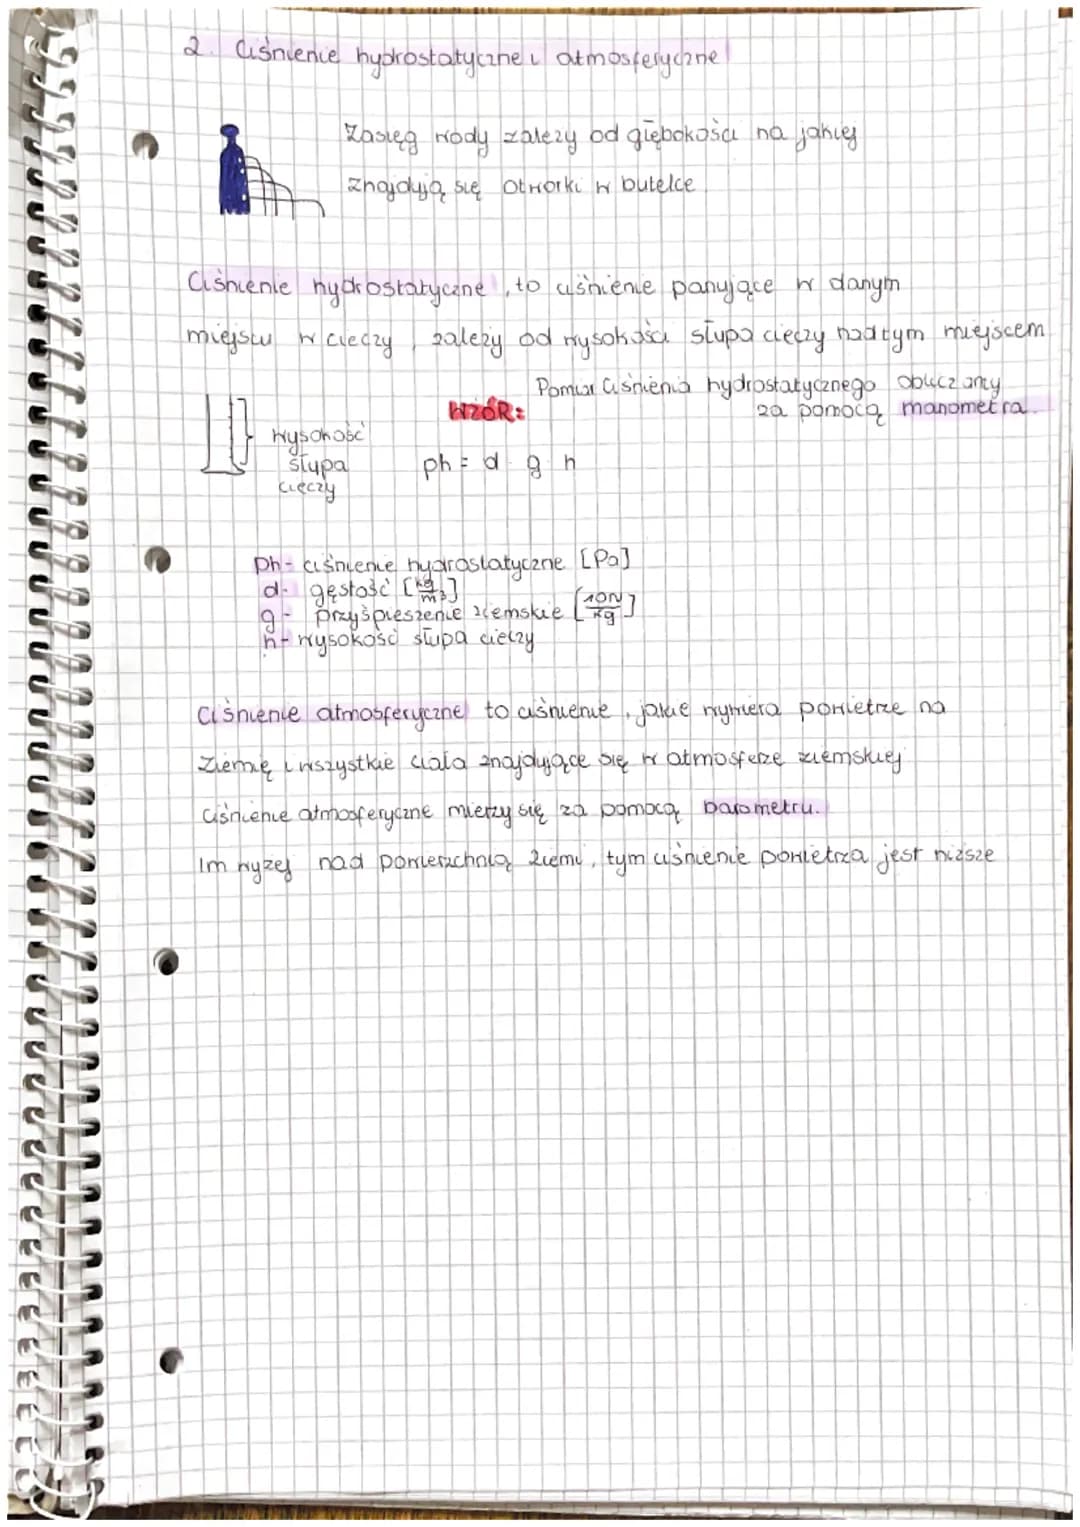 2. Ciśnienie hydrostatyczne i atmosferyczne
Zasięg wody zależy od głębokości na jakiej
znajdują się otworki w butelce.
Ciśnienie hydrostatyczne, to ciśnienie panujące w danym
miejscu w cieczy, zależy od wysokości słupa cieczy nad tym miejscem
Pomiar ciśnienia hydrostatycznego obliczamy
za pomocą manometra.
WZÓR:
wysokość
słupa
cieczy
ph = d · g · h
ph - ciśnienie hydrostatyczne [Pa]
d - gęstość [kg/m³]
g - przyśpieszenie ziemskie [10N/kg]
h - wysokość słupa cieczy
Ciśnienie atmosferyczne to ciśnienie, jakie wywiera powietrze na
Ziemię i wszystkie ciała znajdujące się w atmosferze ziemskiej
Ciśnienie atmosferyczne mierzy się za pomocą barometru.
Im wyżej nad powierzchnią Ziemi, tym ciśnienie powietrza jest niższe